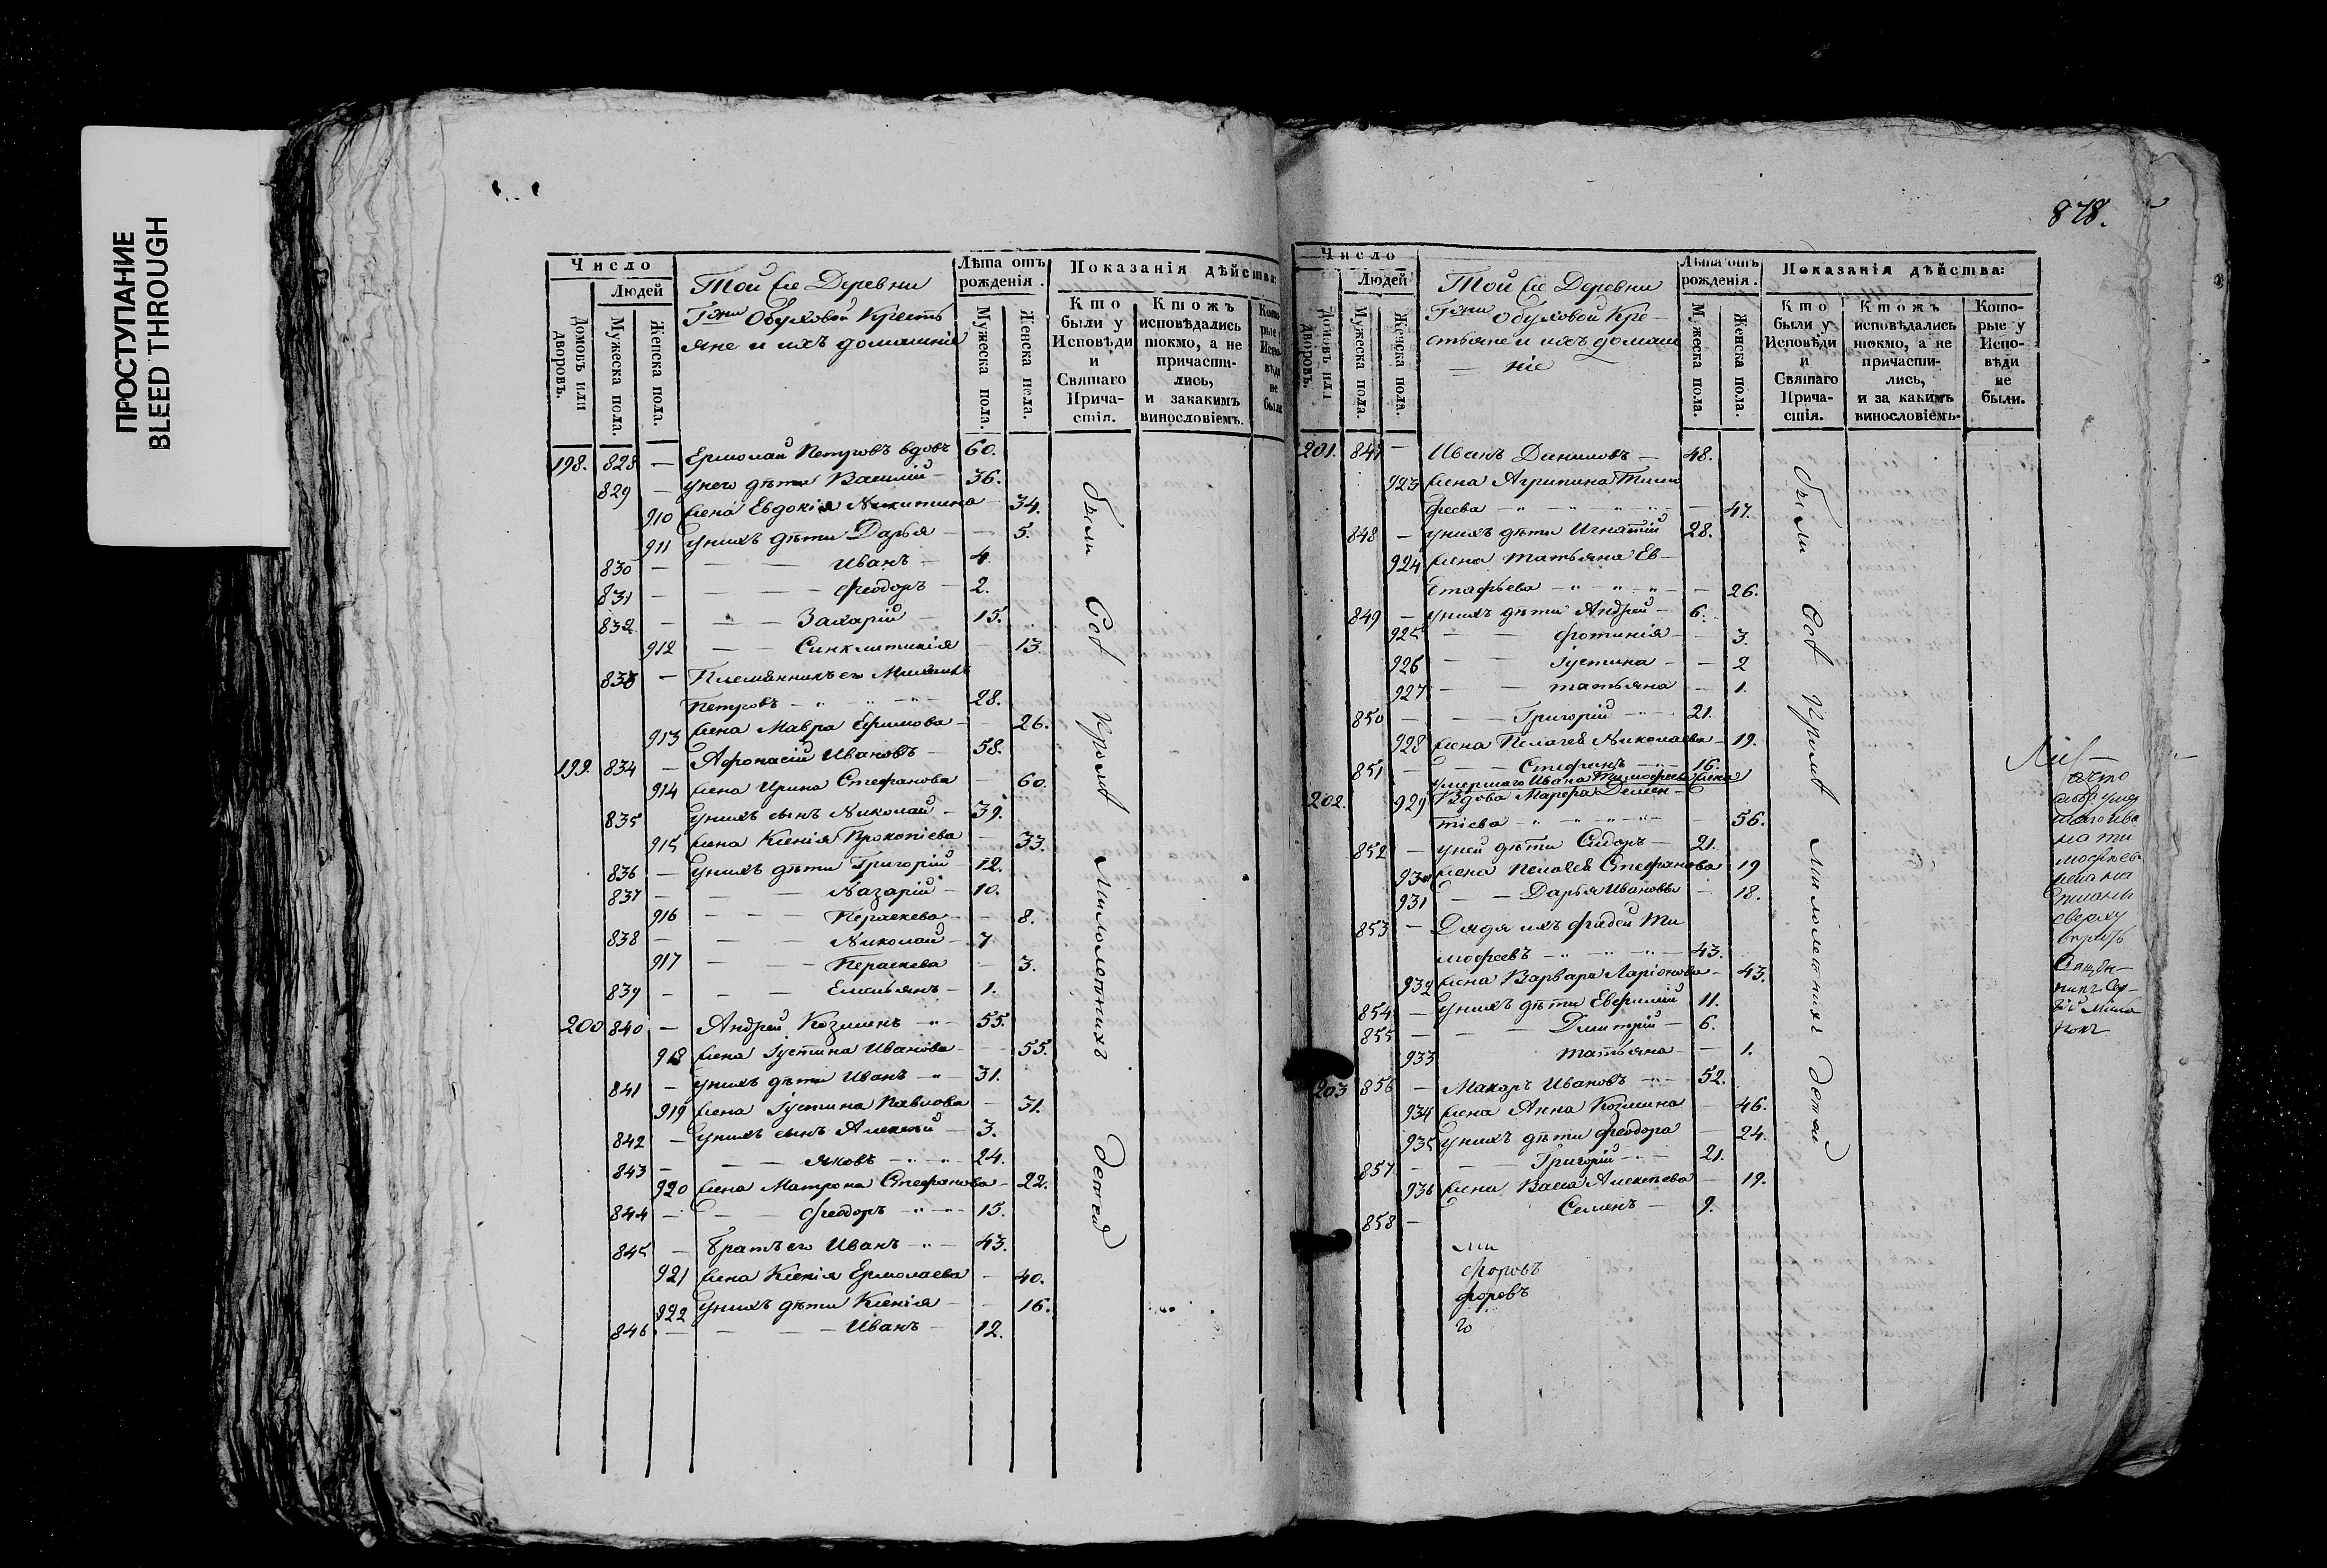 ПРОСТУПАНИЕ
BLEED THROUGH
Число
Людей
Домовъ или дворовъ.
Мужеска пола.
Женска пола.
Той же Деревни
Гжи Обуховой Кресть
яне и ихъ домашнiе
Лѣта отъ рожденiя.
Мужеска пола.
Женска пола.
Показанiя дѣйства:
Кто были у Исповѣди и Святаго Прича-стiя.
Ктожъ исповѣдались токмо, а не причасти-лись, и закакимъ винословiемъ.
Кото-рые у Испо-вѣди не были
198. 828 — Ермолай Петровъ вдовъ 60.
829 — у него дѣти Василiй — 36.
910 жена Евдокiя Никитина 34.
911 у нихъ дѣти Дарья — 5.
830 — Иванъ — 4
831 — Феодоръ — 2.
832 — Захарiй — 15.
912 — Синклитикiя — 13.
833 — Племянникъ его Михаилъ
Петровъ — 28.
913 жена Мавра Ефимова — 26.
199. 834 — Афонасiй Ивановъ — 58.
914 жена Ирина Стефанова — 60.
835 у нихъ сынъ Николай — 39.
915 жена Ксенiя Прокопiева — 33.
836 — у нихъ дѣти Григорiй — 12.
837 — Назарiй — 10.
916 — Параскева — 8.
838 — Николай — 7
917 — Параскева — 3.
839 — Емельянъ — 1.
200 840 — Андрей Козминъ — 55.
918 жена Iустина Иванова — 55.
841 — у нихъ дѣти Иванъ — 31.
919 жена Iустина Павлова — 31.
842 — у нихъ сынъ Алексѣй — 3.
843 — Яковъ — 24.
920 жена Матрона Стефанова — 22.
844 — Феодоръ — 15.
845 — Братъ его Иванъ — 43.
921 жена Ксенiя Ермолаева — 40.
922 у нихъ дѣти Ксенiя — 16.
846 — Иванъ — 12.
были всѣ кромѣ малолѣтнихъ детей
878.
Число
Людей
Домовъ или дворовъ.
Мужеска пола.
Женска пола.
Той же Деревни
Гжи Обуховой Кре-
стьяне и ихъ домаш
— нiе
Лѣта отъ рожденiя.
Мужеска пола.
Женска пола.
Показанiя дѣйства:
Кто были у Исповѣди и Святаго Прича-стiя.
Ктожъ исповѣдались токмо, а не причасти-лись, и за какимъ винословiемъ.
Кото-рые у Испо-вѣди не были.
201. 847 — Иванъ Даниловъ — 48.
923 жена Агрипина Тимо
феева — 47.
848 — у нихъ дѣти Игнатiй 28.
924 жена Татьяна Ев-
стафьева — 26.
849 — у нихъ дѣти Андрей — 6.
925 — Фотинiя — 3.
926 — Iустина — 2
927 — Татьяна — 1.
850 — Григорiй — 21.
928 жена Пелагея Николаева — 19.
851 — Стефанъ — 16.
умершаго Ивана Тимофеева жена
202. 929 Вдова Марфа Демен-
тiева — 56.
852 — у ней дѣти Сидоръ — 21.
930 жена Пелагея Стефанова 19
931 — Дарья Иванова — 18.
853 — Дядя ихъ Фадей Ти
мофеевъ — 43.
932 жена Варвара Ларiонова — 43.
854 — у нихъ дѣти Евфимiй 11.
855 — Дмитрiй — 6.
933 Татьяна — 1.
203 856 — Макаръ Ивановъ — 52.
934 жена Анна Козмина — 46.
935 у нихъ дѣти Феодора — 24.
857 — Григорiй — 21.
936 жена Васса Алексѣева — 19.
858 — Семенъ — 9.
были всѣ кромѣ малолетнихъ детей
что
умер
шаго Ива
на Ти
мофеев
жена на
сверху
вѣрить